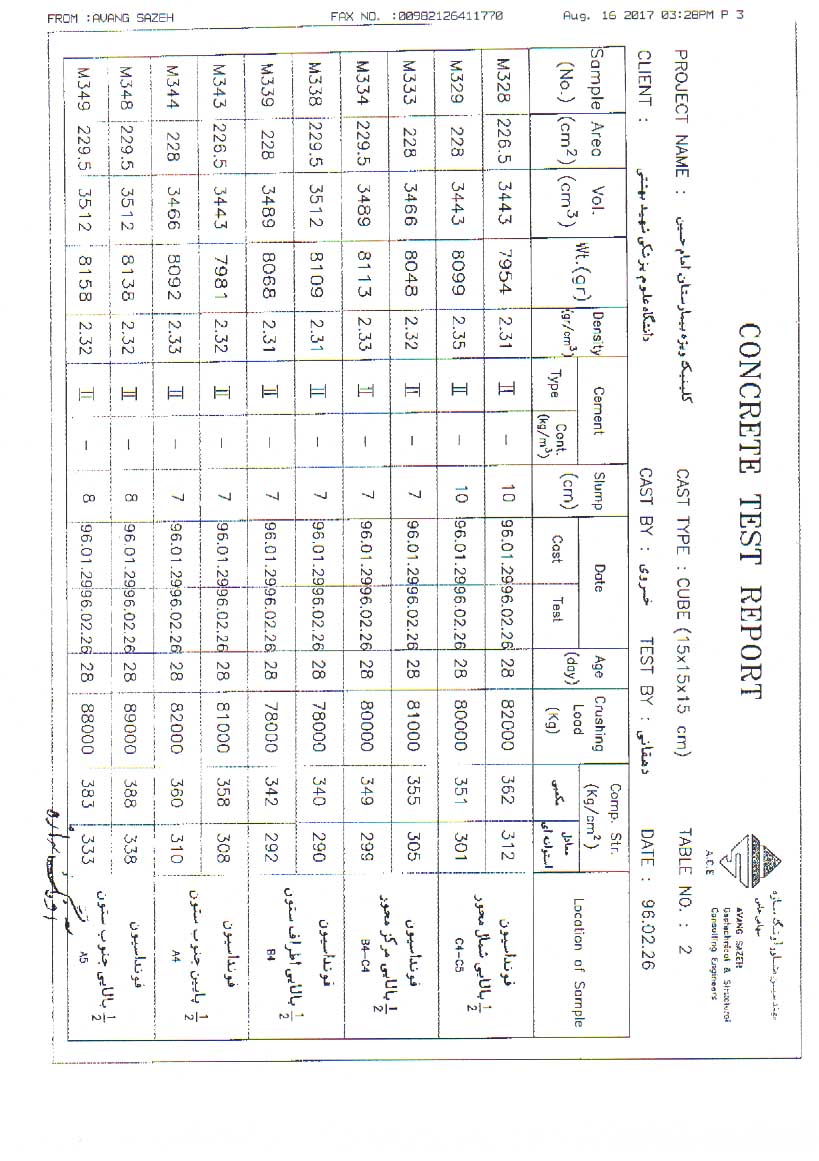 FROM :AVANG SAZEH FAX NO. :00982126411770 Aug. 16 2017 03:28PM P 3
CONCRETE TEST REPORT
مهندسین مشاور آونگ سازه
سهامی خاص
AVANG SAZEH
Geotechnical & Structural
Consulting Engineers
A.C.E
PROJECT NAME : کلینیک ویژه بیمارستان امام حسین CAST TYPE : CUBE (15x15x15 cm) TABLE NO. : 2
CLIENT : دانشگاه علوم پزشکی شهید بهشتی CAST BY : خسروی TEST BY : دهقانی DATE : 96.02.26
Sample (No.) Area (cm2) Vol. (cm3) Wt.(gr) Density (gr/cm3) Cement Type Cont. (kg/m3) Slump (cm) Date Cast Test Age (day) Crushing Load (Kg) Comp. Str. (Kg/cm2) مکعبی معادل استوانه ای Location of Sample
M328 226.5 3443 7954 2.31 II - 10 96.01.29 96.02.26 28 82000 362 312 فونداسیون
M329 228 3443 8099 2.35 II - 10 96.01.29 96.02.26 28 80000 351 301 1/2 بالایی شمال محور C4-C5
M333 228 3466 8048 2.32 II - 7 96.01.29 96.02.26 28 81000 355 305 فونداسیون
M334 229.5 3489 8113 2.33 II - 7 96.01.29 96.02.26 28 80000 349 299 1/2 بالایی مرکز محور B4-C4
M338 229.5 3512 8109 2.31 II - 7 96.01.29 96.02.26 28 78000 340 290 فونداسیون
M339 228 3489 8068 2.31 II - 7 96.01.29 96.02.26 28 78000 342 292 1/2 بالایی اطراف ستون B4
M343 226.5 3443 7981 2.32 II - 7 96.01.29 96.02.26 28 81000 358 308 فونداسیون
M344 228 3466 8092 2.33 II - 7 96.01.29 96.02.26 28 82000 360 310 1/2 پایین جنوب ستون A4
M348 229.5 3512 8138 2.32 II - 8 96.01.29 96.02.26 28 89000 388 338 فونداسیون
M349 229.5 3512 8158 2.32 II - 8 96.01.29 96.02.26 28 88000 383 333 1/2 بالایی جنوب ستون A5